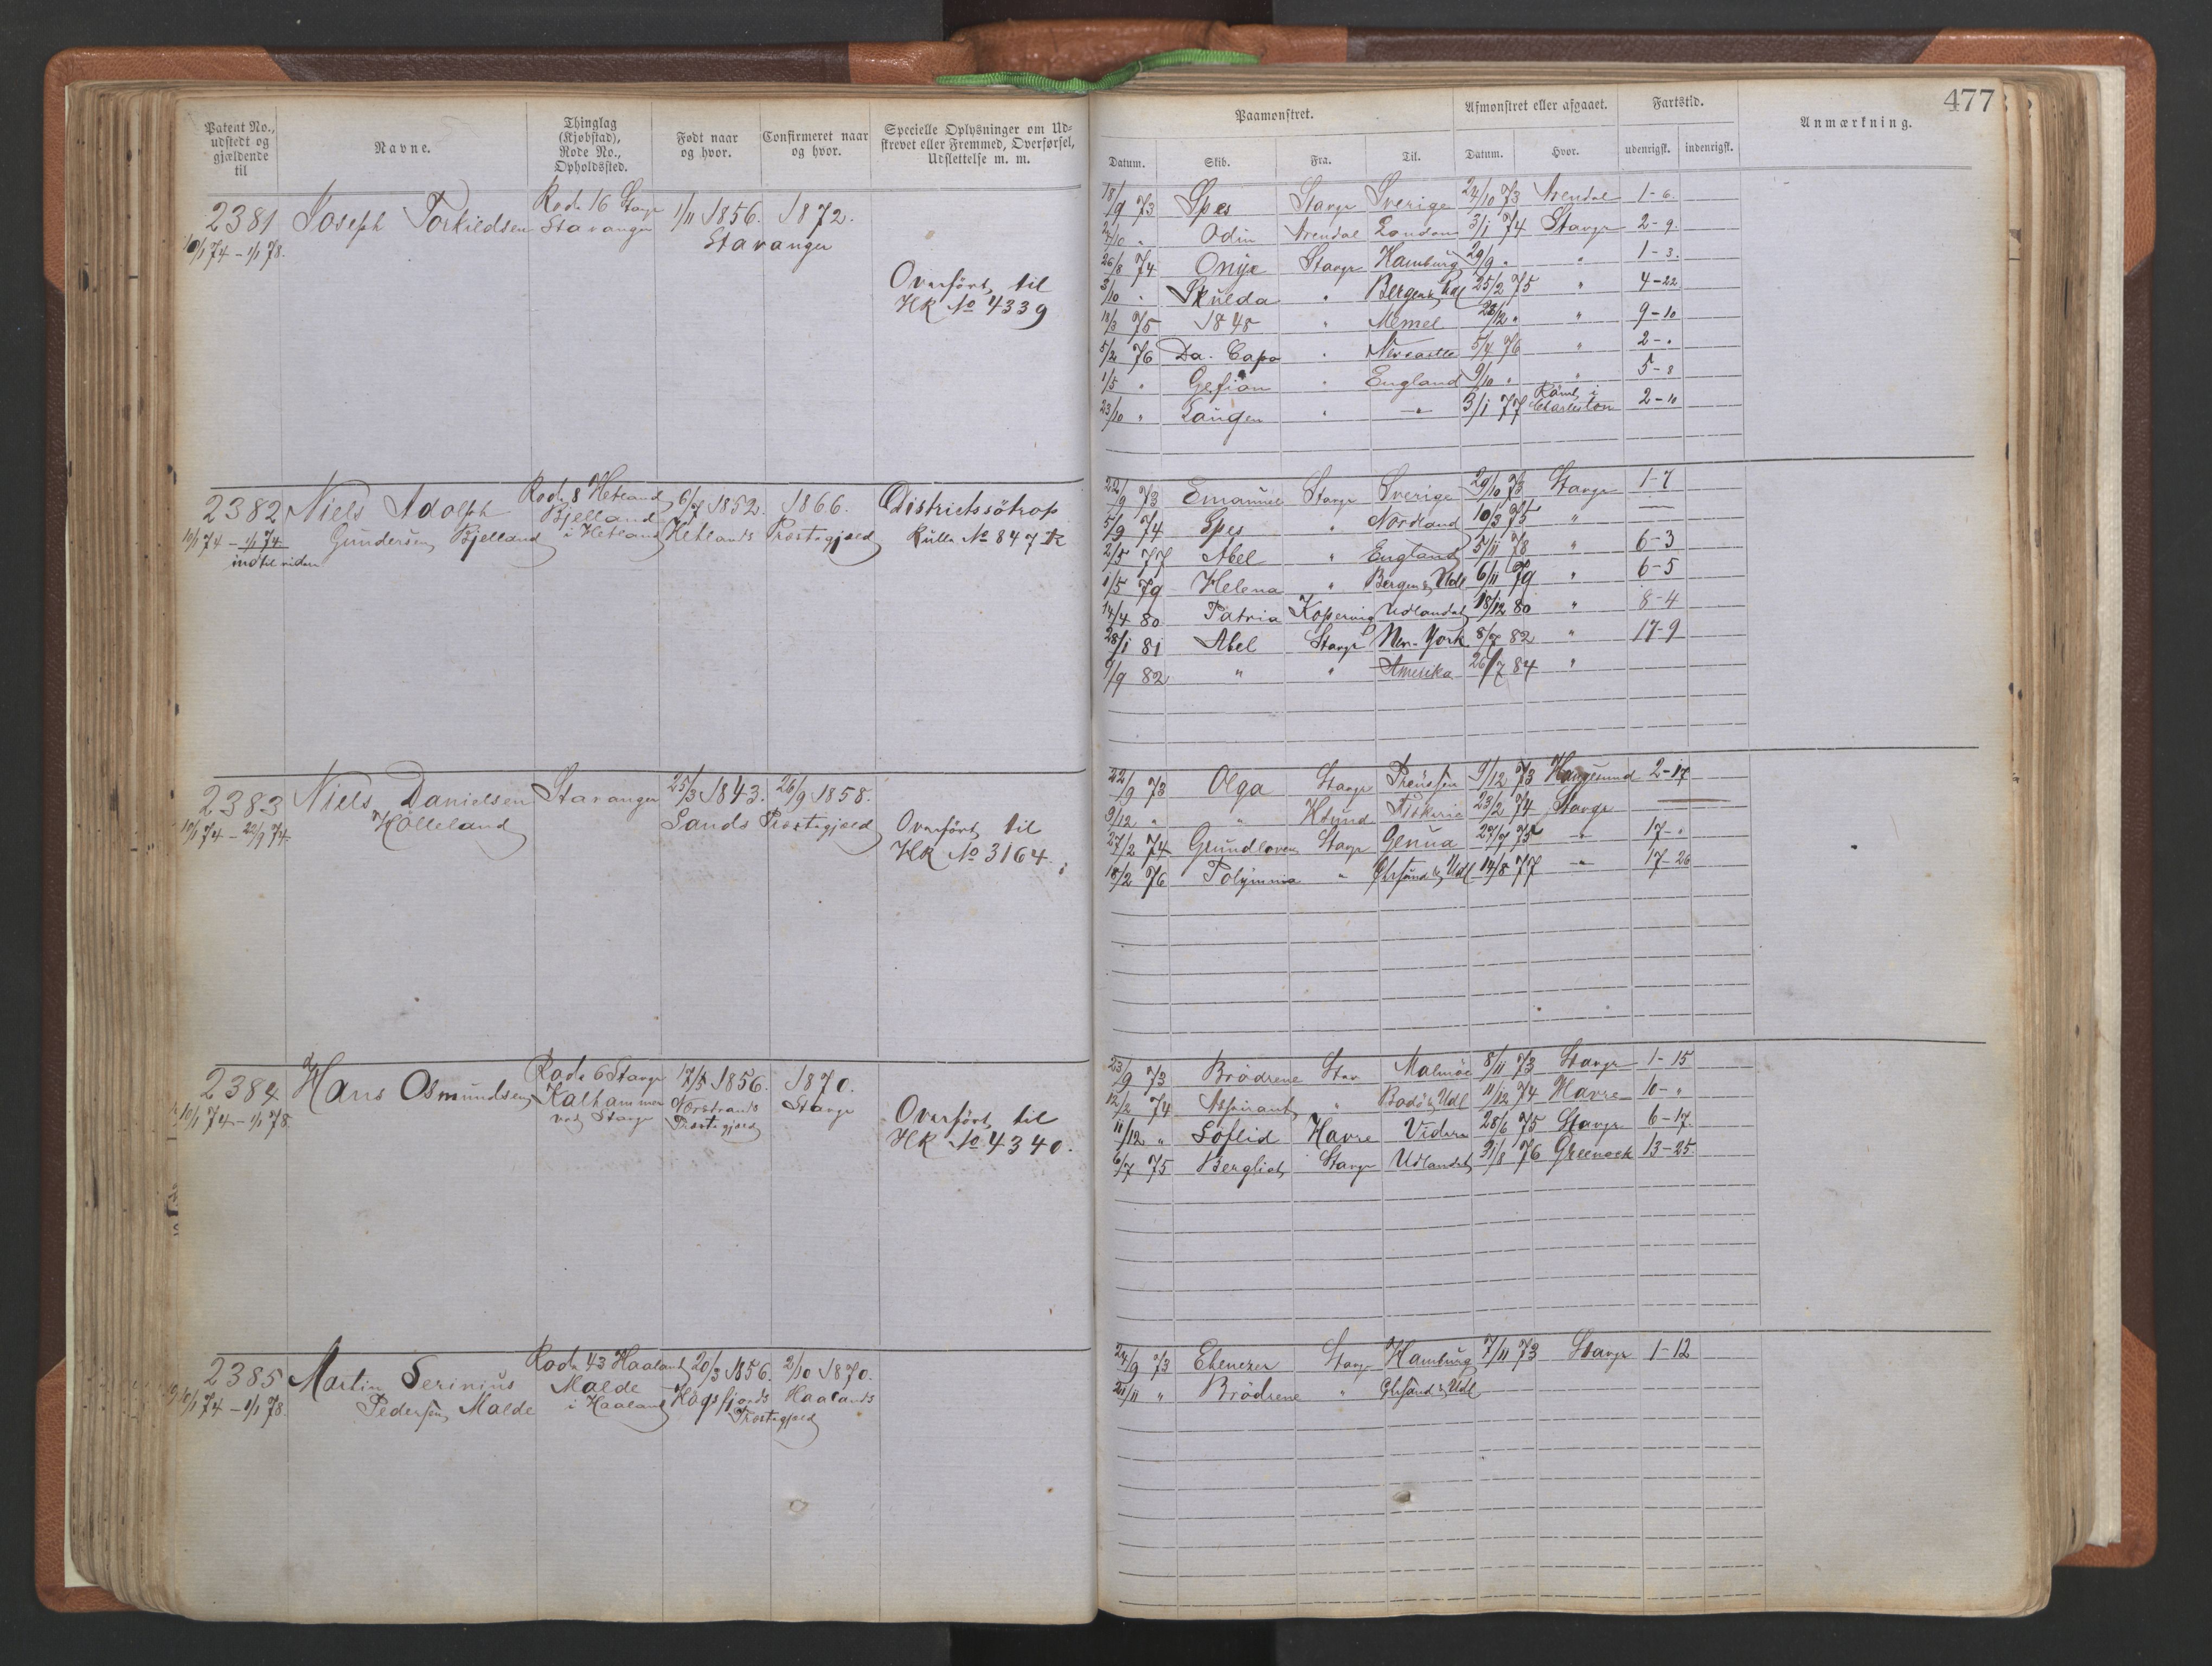 Patent No., udstedt og gjældende til
Navne.
Thinglag (Kjøbstad), Rode No., Opholdssted.
Født naar og hvor.
Confirmeret naar og hvor.
Specielle Oplysninger om Udskrevet eller Fremmed, Overførsel, Udslettelse m. m.
2381 Joseph Torkildsen Rode 16 Stavgr 1/11 1856. 1872.
10/1 74 - 1/1 78. Stavanger Stavanger
Overført til
HK No 4339
2382 Niels Adolph Rode 8 Hetland 6/7 1852. 1866. Districtssötrop
10/1 74 - 1/1 74 Gundersen Bjelland Bjelland i Hetland Hetlands Præstegjæld Rulle No 847
indtil viden
2383 Niels Danielsen Stavanger 25/3 1843. 26/9 1858.
10/1 74 - 22/9 74. Hölleland Sands Præstegjæld Overført til
HK No 3164.
2384 Hans Osmundsen Rode 6 Stavgr 17/5 1856. 1870.
10/1 74 - 1/1 78 Kalhammer Norstrands Stavgr
ved Stavgr Præstegjæld Overført til
HK No 4340.
2385 Martin Serinius Rode 43 Haaland 20/3 1856. 2/10 1870.
10/1 74 - 1/1 78. Pedersen Malde Malde i Haaland Høgsfjords Haalands
Præstegjæld
477
Paamønstret. Afmønstret eller afgaaet. Fartstid. Anmærkning.
Datum. Skib. Fra. Til. Datum. Hvor. udenrigsk. indenrigsk.
18/9 73 Spes Stavgr Sverige 24/10 73 Arendal 1-6.
24/10 " Odin Arendal London 3/1 74 Stavgr 2-9.
26/8 74 Onyx Stavgr Hamburg 29/9 " " 1-3.
3/10 " Skulda " Bergen & Udl 25/2 75 " 4-22
18/3 75 1848 " Memel 28/12 " " 9-10
5/2 76 Da. Capo " Newcastle 5/4 76 " 2-"
1/5 " Gefion " England 9/10 " " 5-8
23/10 " Laugen " " 3/1 77 Römt i Charleston 2-10
22/9 73 Emanuel Stavgr Sverige 29/10 73 Stavgr 1-7
5/9 74 Spes " Nordland 10/3 75 " —
2/5 77 Abel " England 5/11 78 " 6-3
1/5 79 Helena " Bergen & Udl 6/11 79 " 6-5
14/4 80 Patria Kopervig Udlandet 18/12 80 " 8-4
28/1 81 Abel Stavgr New-York 8/7 82 " 17-9
1/9 82 " " Amerika 26/7 84 "
22/9 73 Olga Stavgr Preussen 9/12 73 Haugesund 2-17
9/12 " " Hsund Fiskeri 23/2 74 Stavgr —
27/2 74 Grundloven Stavgr Genua 27/7 75 " 17-"
18/2 76 Polymnia " Ghsund & Udl 14/8 77 " 17-26
23/9 73 Brödrene Stav Malmöe 8/11 73 Stavgr 1-15
12/2 74 Aspirant " Bodö & Udl 11/12 74 Havre 10-"
11/12 " Soflid Havre Videre 28/6 75 Stavgr 6-17.
6/7 75 Bergliot Stavgr Udlandet 31/8 76 Greenock 13-25
24/9 73 Ebenezer Stavgr Hamburg 7/11 73 Stavgr 1-12
21/11 " Brödrene " Ghsund & Udl